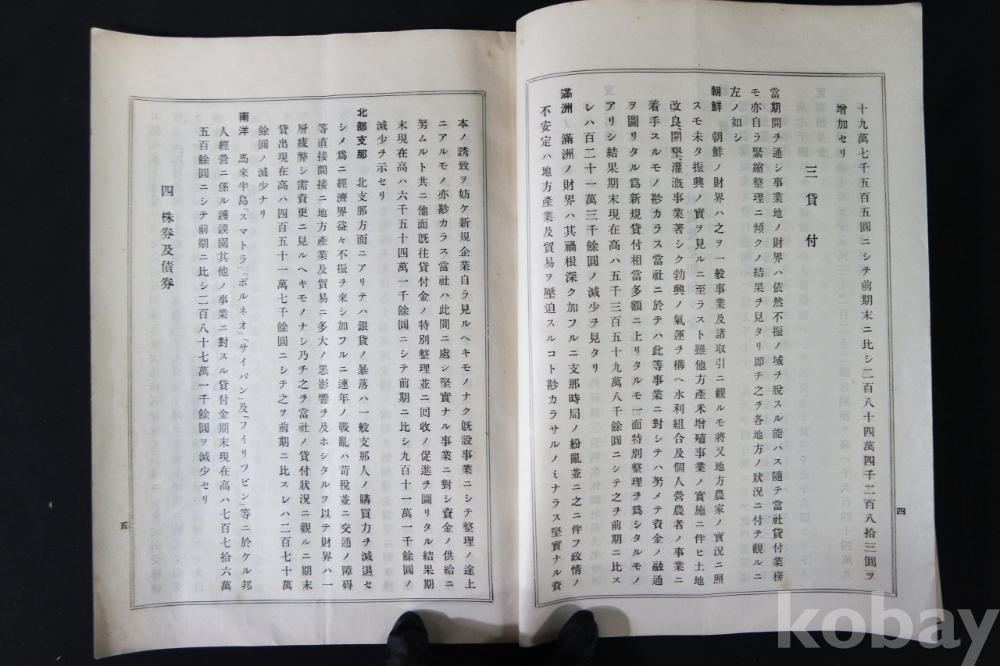 十九萬七千五百五圓ニシテ前期末ニ比シ二百八十四萬四千二百八拾三圓ヲ
增加セリ
三貸付
當期間ヲ通シ事業地ノ財界ハ依然不振ノ域ヲ脫スル能ハス隨テ當社貸付業務
モ亦自ラ緊縮整理ニ傾クノ結果ヲ見タリ卽チ之ヲ各地方ノ狀況ニ付テ觀ルニ
左ノ如シ
朝鮮 朝鮮ノ財界ハ之ヲ一般事業及諸取引ニ觀ルモ將又地方農家ノ實況ニ照
スモ未タ振興ノ實ヲ見ルニ至ラスト雖他方產米增殖事業ノ實施ニ件ヒ土地
改良、開墾灌漑事業著シク勃興ノ氣運ヲ構ヘ水利組合及個人營農者ノ事業ニ
着手スルモノ尠カラス當社ニ於テハ此等事業ニ對シテハ努メテ資金ノ融通
ヲ圖リタル爲新規貸付相當多額ニ上リタルモ一面特別整理ヲ爲シタルモノ
アリシ結果期末現在高ハ五千三百五十九萬八千餘圓ニシテ之ヲ前期ニ比ス
レハ百二十一萬三千餘圓ノ減少ヲ見タリ
滿洲 滿洲ノ財界ハ其禍根深ク加フルニ支那時局ノ紛亂並ニ之ニ伴フ政情ノ
不安定ハ地方產業及貿易ヲ壓迫スルコト尠カラサルノミナラス堅實ナル資
四
本ノ誘致ヲ妨ケ新規企業自ラ見ルヘキモノナク旣設事業ニシテ整理ノ途上
ニアルモノ亦尠カラス當社ハ此間ニ處シ堅實ナル事業ニ對シ資金ノ供給ニ
努ムルト共ニ他面旣往貸付金ノ特別整理並ニ回收ノ促進ヲ圖リタル結果期
末現在高ハ六千五十四萬一千餘圓ニシテ前期ニ比シ九百十一萬一千餘圓ノ
減少ヲ示セリ
北部支那 北支那方面ニアリテハ銀貨ノ暴落ハ一般支那人ノ購買力ヲ減退セ
シメ爲ニ經濟界益々不振ヲ來シ加フルニ連年ノ戰亂ハ苛稅並ニ交通ノ障碍
等直接間接ニ地方產業及貿易ニ多大ノ惡影響ヲ及ホシタルヲ以テ財界ハ一
層疲弊シ需資更ニ見ルヘキモノナシ乃チ之ヲ當社ノ貸付狀況ニ觀ルニ期末
貸出現在高ハ四百五十一萬七千餘圓ニシテ之ヲ前期ニ比スレハ二百七十萬
餘圓ノ減少ナリ
南洋 馬來半島「スマトラ」「ボルネオ」「サイパン」及「フイリツピン」等ニ於ケル邦
人經營ニ係ル護謨園其他ノ事業ニ對スル貸付金期末現在高ハ七百七拾六萬
五百餘圓ニシテ前期ニ比シ二百八十七萬一千餘圓ヲ減少セリ
四 株券及債券
五
kobay